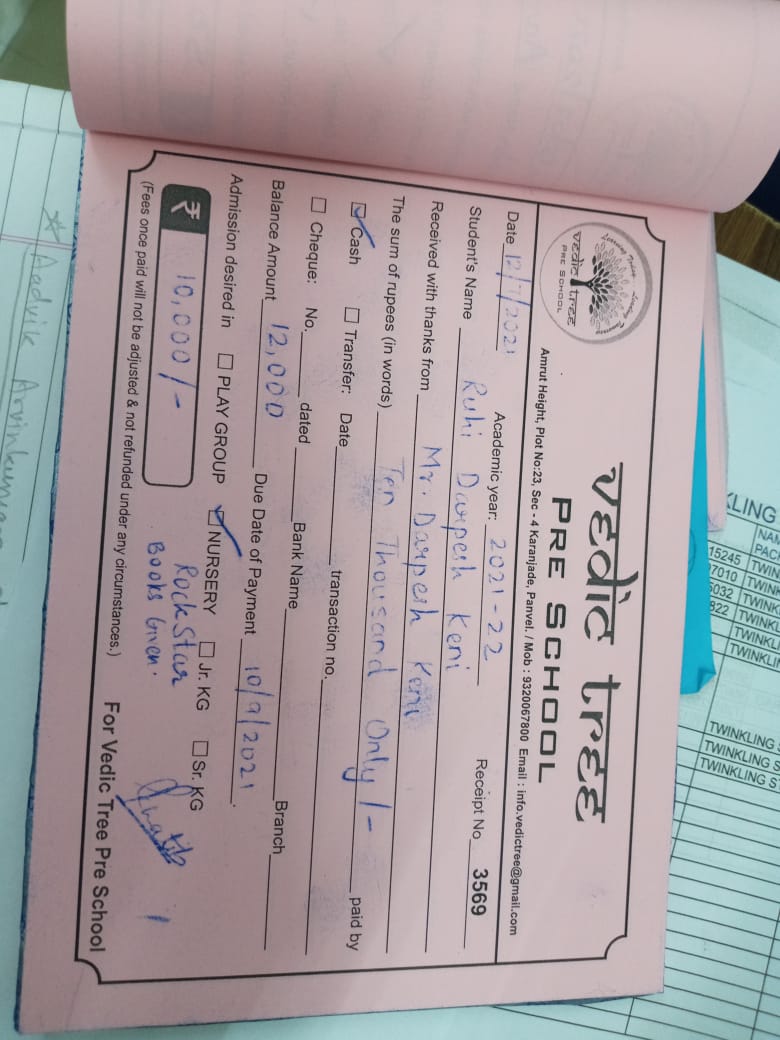 vedic tree
PRE SCHOOL
vedic tree
PRE SCHOOL
Amrut Height, Plot No:23, Sec - 4 Karanjade, Panvel. / Mob : 9320067800 Email : info.vedictree@gmail.com
Date 12/7/2021 Academic year: 2021-22 Receipt No 3569
Student's Name Ruhi Darpesh Keni
Received with thanks from Mr. Darpesh Keni
The sum of rupees (in words) Ten Thousand Only/- paid by
Cash Transfer: Date transaction no.
Cheque: No. dated Bank Name Branch
Balance Amount 12,000 Due Date of Payment 10/9/2021.
Admission desired in PLAY GROUP NURSERY Jr. KG Sr. KG
₹ 10,000/- Rockstar
Books Given.
(Fees once paid will not be adjusted & not refunded under any circumstances.) For Vedic Tree Pre School
* Aadvik
KLING
NAM
PAC
15245 TWIN
7010 TWIN
6032 TWINK
822 TWINKL
TWINKLI
TWINKLI
TWINKLING
TWINKLING S
TWINKLING S